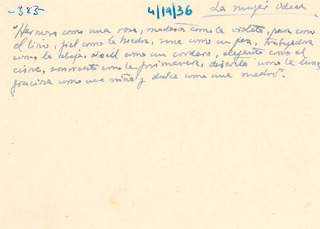 -383- 4/19/36 La mujer ideal
"Hermosa como una rosa, modesta como la violeta, pura como
el lirio, fiel como la hiedra, como un pez, trabajadora
como la abeja, dócil como un cordero, elegante como el
cisne, sonriente como la primavera, discreta como la luna,
graciosa como una niña y dulce como una madre".